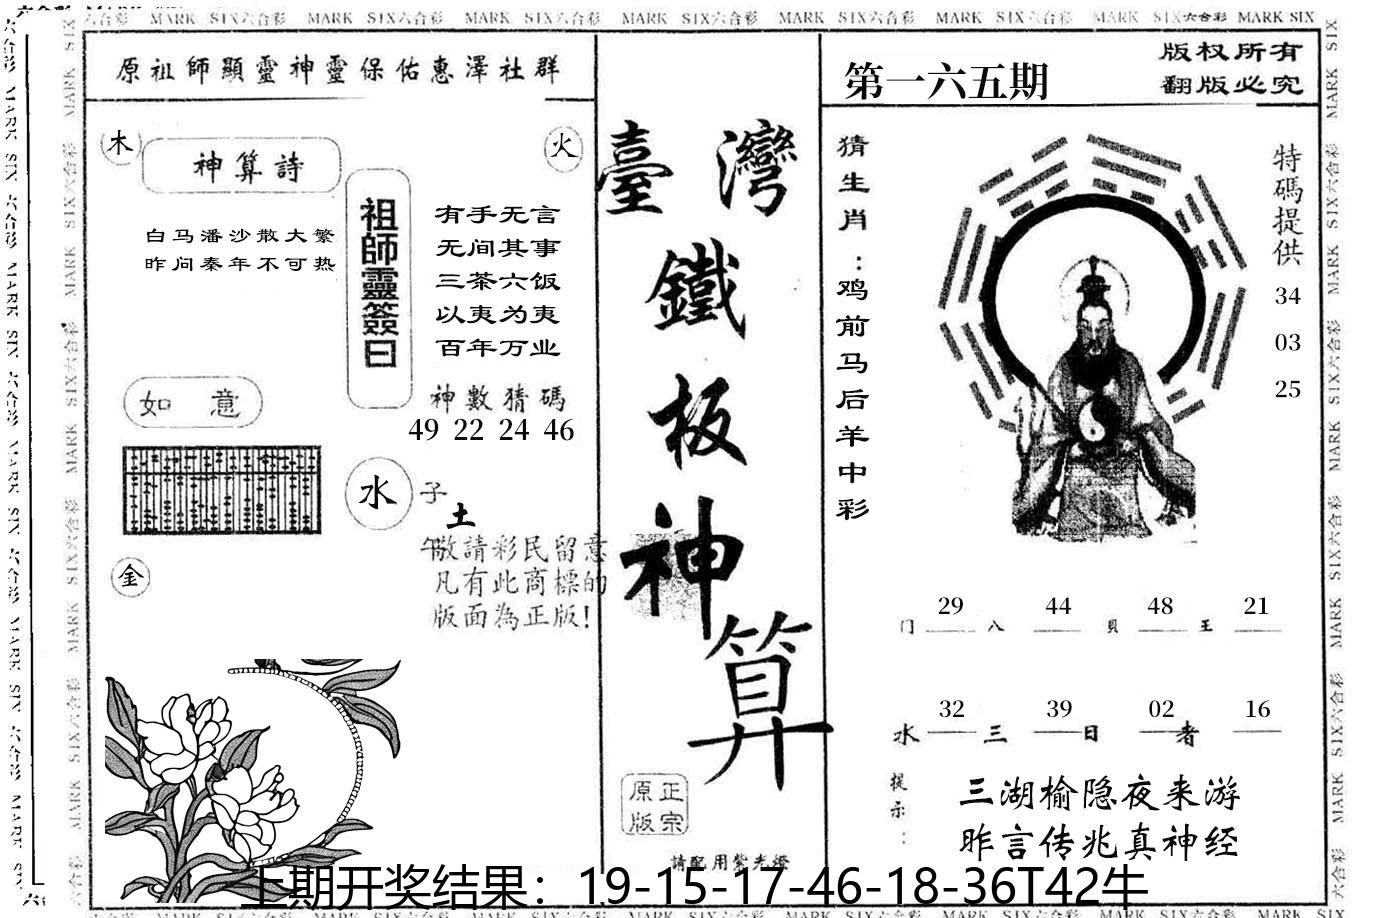 MARK SIX六合彩 MARK SIX六合彩 MARK SIX六合彩 MARK SIX六合彩 MARK SIX六合彩 MARK SIX六合彩 MARK SIX六合彩 MARK SIX
原祖師顯靈神靈保佑惠澤社群
木
火
神算詩
白马潘沙散大繁
昨问秦年不可热
祖師靈簽曰
有手无言
无间其事
三茶六饭
以夷为夷
百年万业
神數猜碼
49 22 24 46
如意
水
子
土
午
金
敬請彩民留意
凡有此商標的
版面為正版!
臺灣
鐵
板
神
算
正宗
原版
請配用紫光燈
第一六五期
版权所有
翻版必究
猜生肖:鸡前马后羊中彩
特碼提供
34
03
25
29 44 48 21
门 八 貝 王
32 39 02 16
水 三 日 者
提示:
三湖榆隐夜来游
昨言传兆真神经
上期开奖结果：19-15-17-46-18-36T42牛